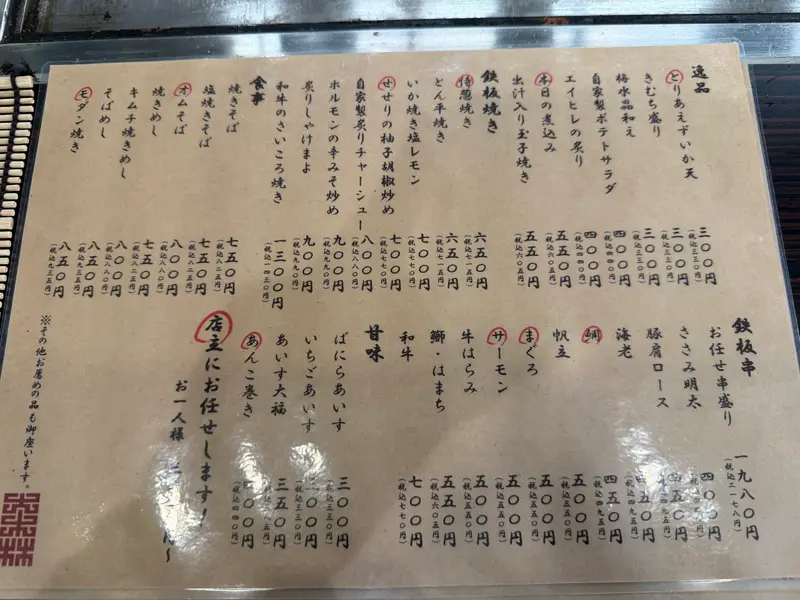 逸品
とりあえずいか天 三〇〇円 (税込三三〇円)
きむち盛り 三〇〇円 (税込三三〇円)
梅水晶和え 三〇〇円 (税込三三〇円)
自家製ポテトサラダ 四〇〇円 (税込四四〇円)
エイヒレの炙り 四〇〇円 (税込四四〇円)
本日の煮込み 五五〇円 (税込六〇五円)
出汁入り玉子焼き 五五〇円 (税込六〇五円)
鉄板焼き
葱焼き 六五〇円 (税込七一五円)
とん平焼き 六五〇円 (税込七一五円)
いか焼き塩レモン 七〇〇円 (税込七七〇円)
せせりの柚子胡椒炒め 七〇〇円 (税込七七〇円)
自家製炙りチャーシュー 八〇〇円 (税込八八〇円)
ホルモンの辛みそ炒め 九〇〇円 (税込九九〇円)
炙りしゃけまよ 九〇〇円 (税込九九〇円)
和牛のさいころ焼き 一三〇〇円 (税込一四三〇円)
食事
焼きそば 七五〇円 (税込八二五円)
塩焼きそば 七五〇円 (税込八二五円)
オムそば 八〇〇円 (税込八八〇円)
焼きめし 七五〇円 (税込八二五円)
キムチ焼きめし 八〇〇円 (税込八八〇円)
そばめし 八五〇円 (税込九三五円)
モダン焼き 八五〇円 (税込九三五円)
鉄板串
お任せ串盛り 一九八〇円 (税込二一七八円)
ささみ明太 四〇〇円 (税込四四〇円)
豚肩ロース 四五〇円 (税込四九五円)
海老 四五〇円 (税込四九五円)
鯛 四五〇円 (税込四九五円)
帆立 五〇〇円 (税込五五〇円)
まぐろ 五〇〇円 (税込五五〇円)
サーモン 五〇〇円 (税込五五〇円)
牛はらみ 五〇〇円 (税込五五〇円)
鰤・はまち 五五〇円 (税込六〇五円)
和牛 七〇〇円 (税込七七〇円)
甘味
ばにらあいす 三〇〇円 (税込三三〇円)
いちごあいす 三〇〇円 (税込三三〇円)
あいす大福 三五〇円
あんこ巻き 四〇〇円 (税込四四〇円)
店主にお任せします！
お一人様 円〜
※その他お薦めの品も御座います。